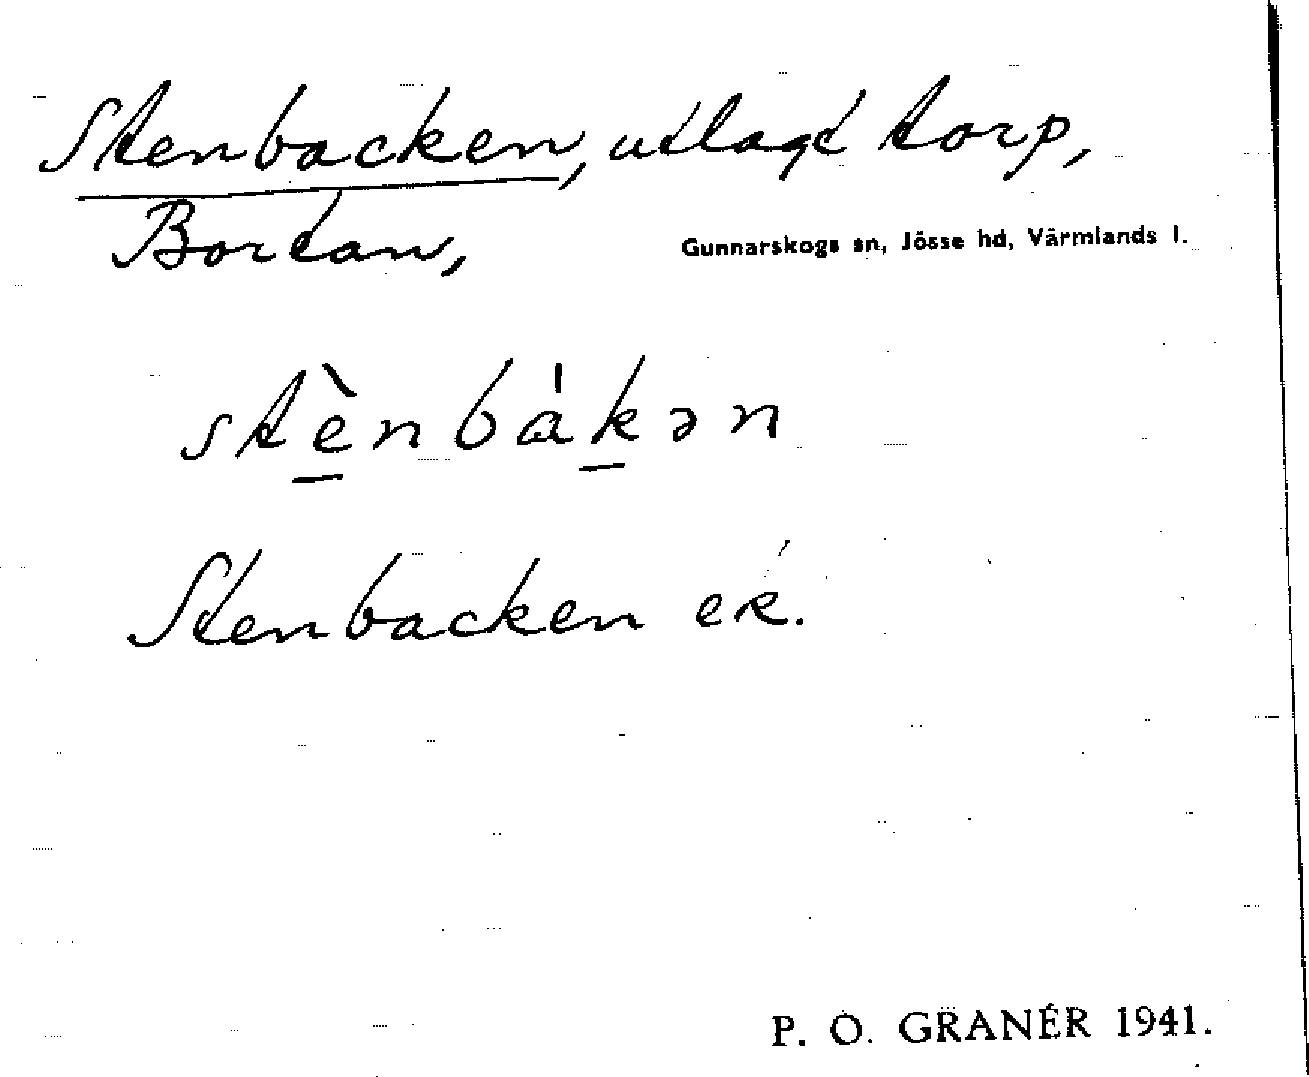 Stenbacken, utlagt torp,
Bortan,
Gunnarskogs sn, Jösse hd, Värmlands l.
stè̠nbák̠ən
Stenbacken ek.
P. O. GRANÉR 1941.